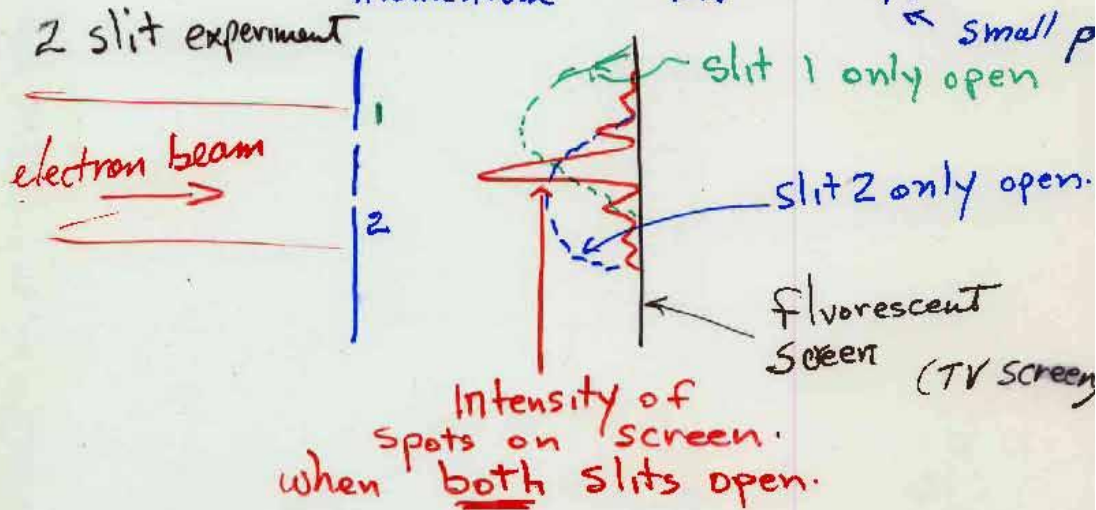 small p
2 slit experiment
slit 1 only open
1
electron beam
slit 2 only open.
2
fluorescent
screen
(TV screen)
Intensity of
spots on screen.
when both slits open.